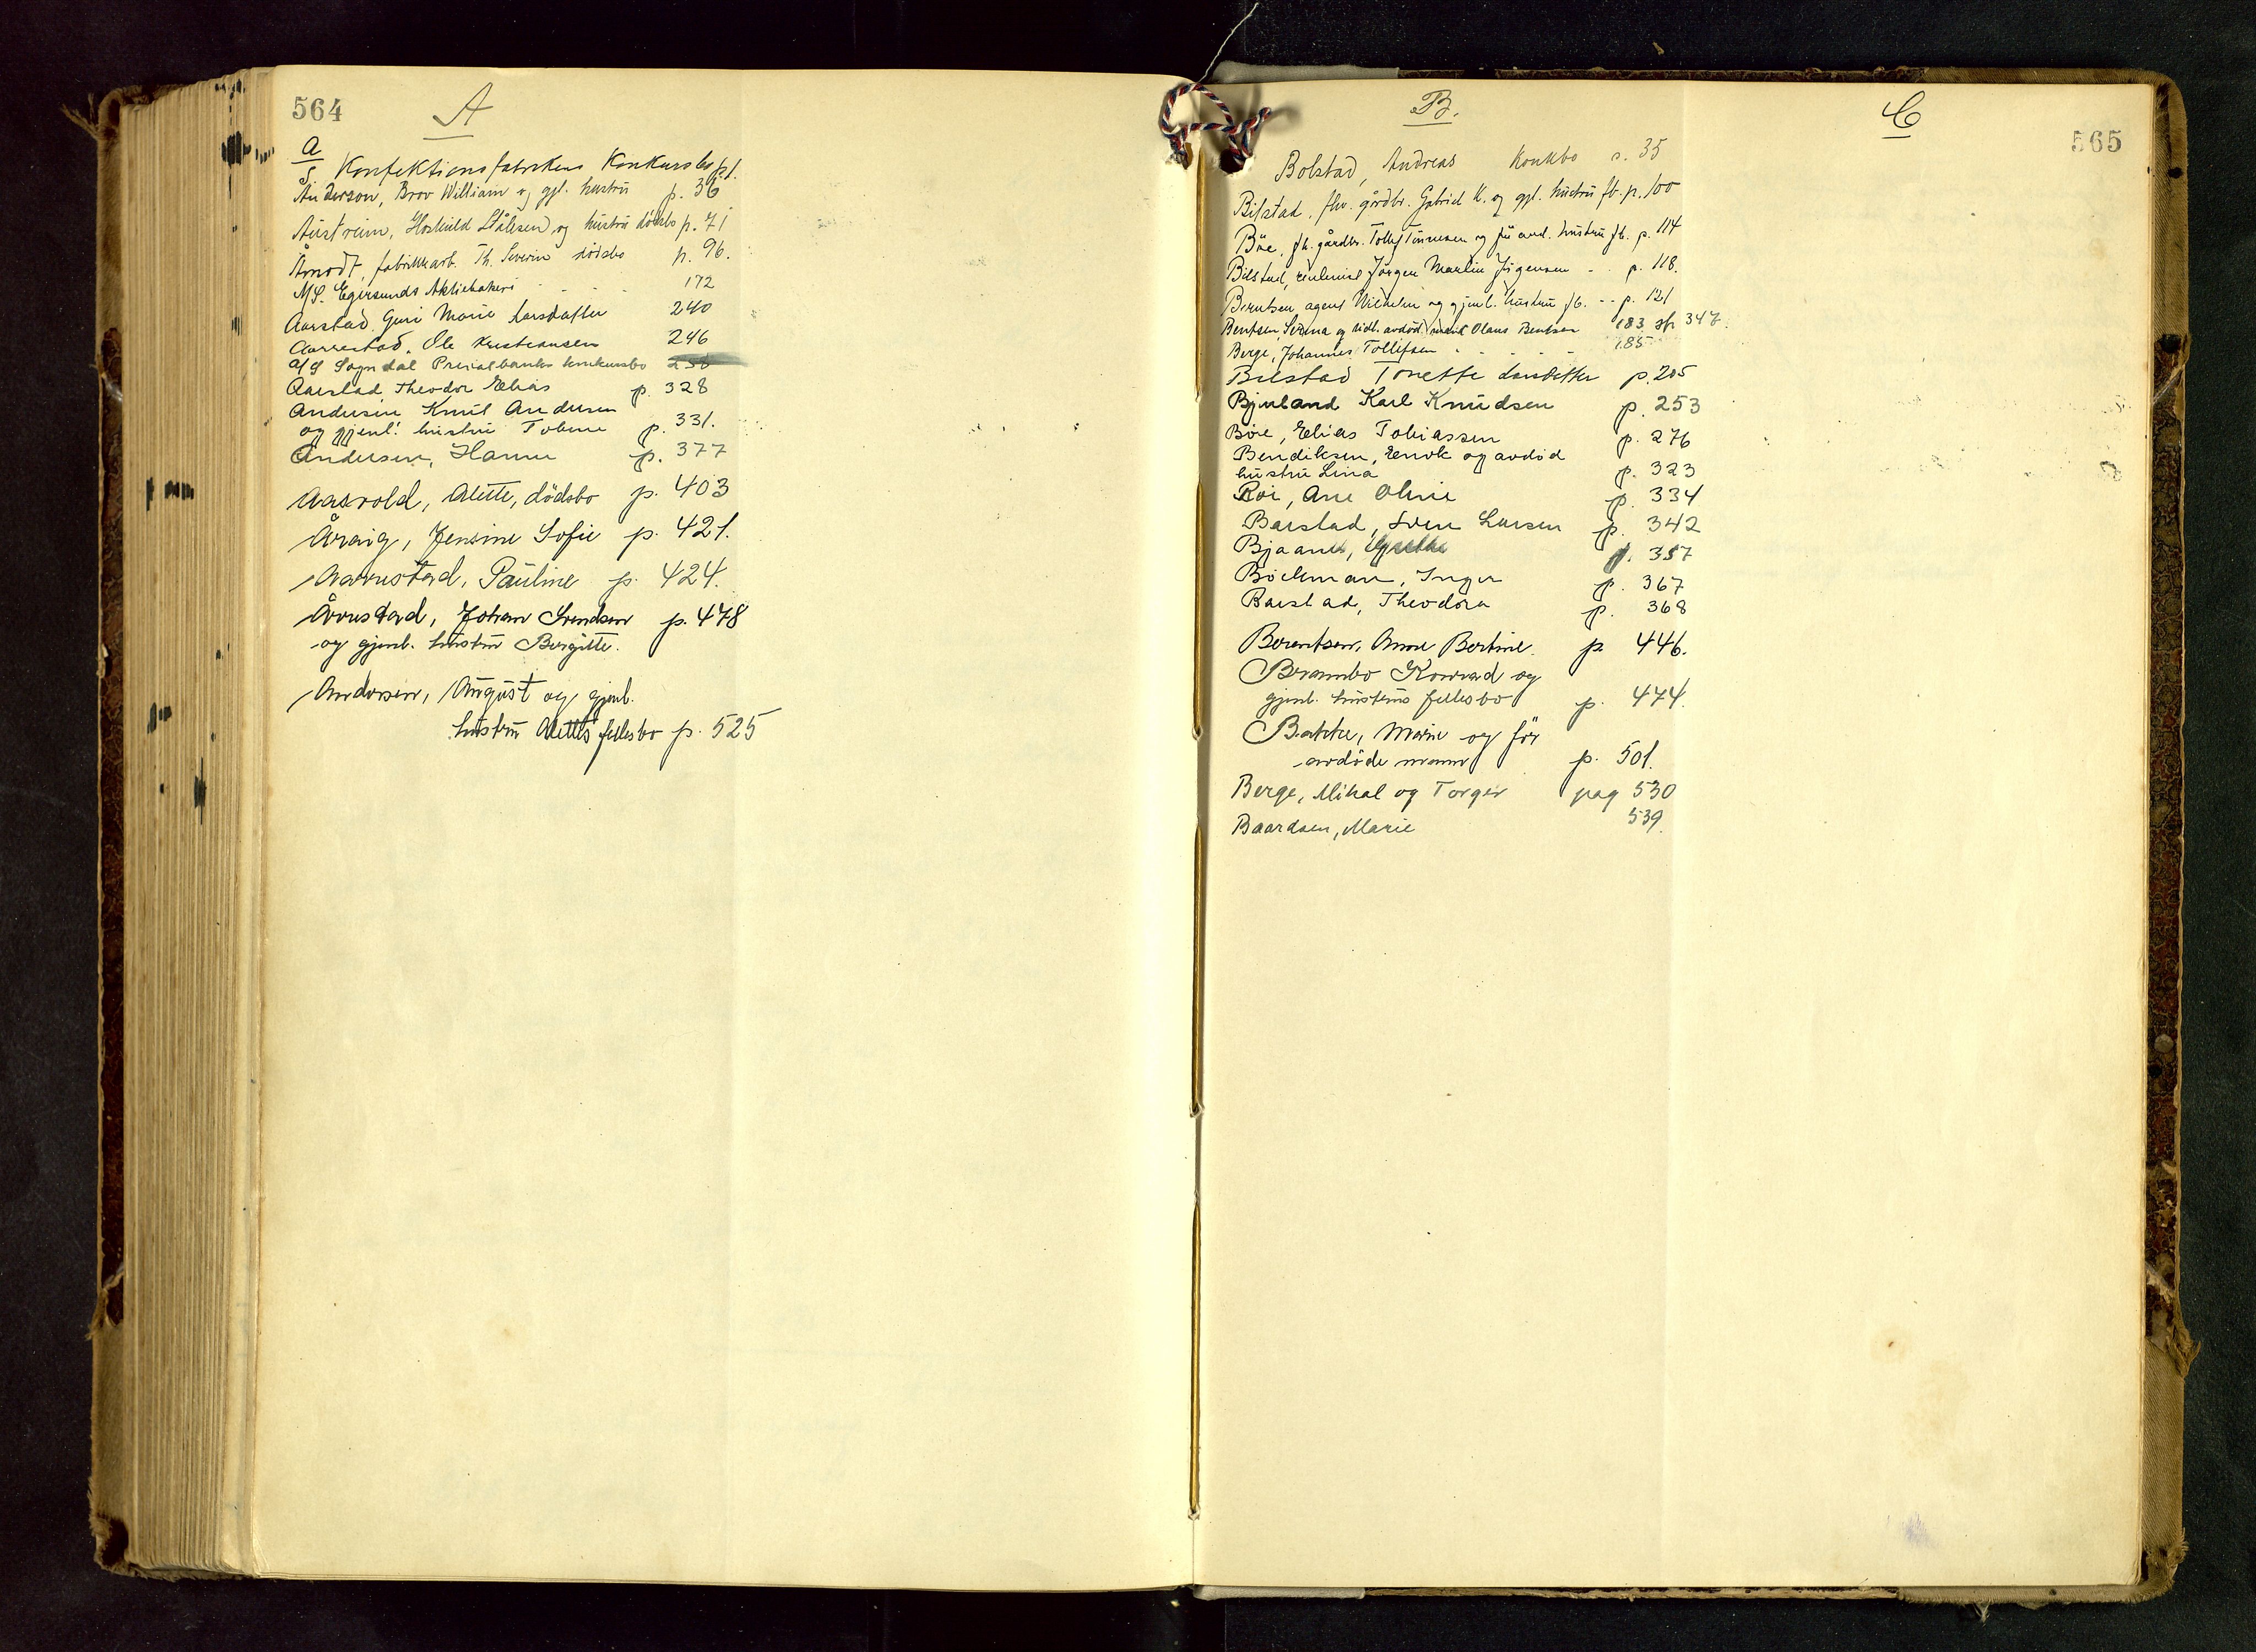 564
A
a/s Konfektionsfabrikens Konkursbo p. 1.
Anderson, Brov William og gjl. hustrü p. 36
Aüstreim, Stålesen og hüstrü dödsbo p. 71
Åmodt, fabrikkarb. Th. Severin dödsbo p. 96.
A/S. Egersunds Aktiebakeri . . . 172
Aarstad Guri Marie Larsdatter 240
Aarrestad, Ole Kristiansen 246
a/s Sogndal Privatbanks konkursbo 258
Aarstad Theodor Elias p. 328
Andersen Knut Andersen
og gjenl. hustru Tobine p. 331.
Andersen, Hanne p. 377
Aasvold, Alette, dödsbo p. 403
Åraig, Jensine Sofie p. 421.
Aarrestad, Paüline p. 424.
Årrestad, Johan Svendsen p. 478
og gjenl. hüstrü Bergitte.
Andersen, Aügüst og gjenl.
hüstrü Alettes fellesbo p. 525
B.
Bolstad, Andreas Konkbo s. 35
Bilstad, fhv. gårdbr. Gabriel K. og gjl. hüstrü fb. p. 100
Böe, fh. gårdbr. Tollef Tönnesen og avd. hüstrü fb. p. 114
Bilstad, Jörgen Martin Jörgensen - - p. 118.
Berntsen, agent Wilhelm og gjenl. hüstrü fb. - - p. 121
Bentsen, Serina og tidl. avdöd mand Olaus Bentsen 183 sfr 347.
Berge, Johannes Tollifsen . . . . - 185
Bilstad Tonette Larsdatter p. 205
Bjuland Karl Knudsen p. 253
Böe, Elias Tobiassen p. 276
Bendiksen, Enok og avdöd
hustru Lina p. 323
Boe, Ane Oline p. 334
Barstad, Sven Larsen p. 342
Bjaanes, p. 357
Böckman, Inger p. 367
Barstad, Theodora p. 368
Berentsen, Anne Bertine. p 446.
Brambo Konrad og
gjenl. hüstrüs fellesbo p. 474.
Bakke, Marie og för
avdöde mann p. 501.
Berge, Mikal og Torger pag 530
Baardsen, Marie 539.
C
565